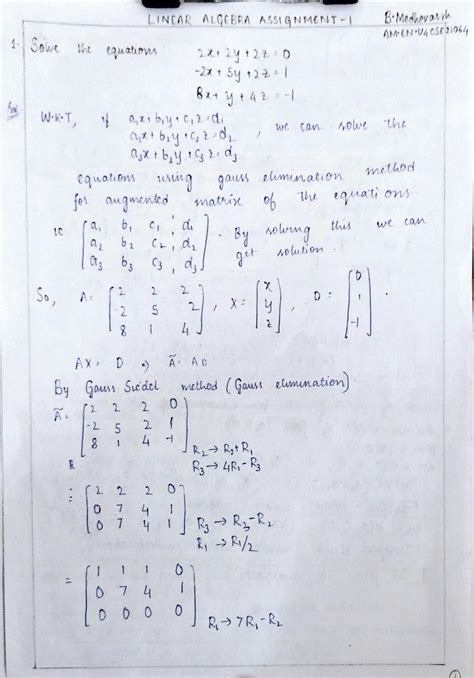 LINEAR ALGEBRA ASSIGNMENT-1
B. Madhavarsh
AM.EN.U4CSE21064
1. Solve the equations 2x+2y+2z=0
-2x+5y+2z=1
8x+y+4z=-1
Sol:
W.K.T, if a₁x+b₁y+c₁z=d₁
a₂x+b₂y+c₂z=d₂ , we can solve the
a₃x+b₃y+c₃z=d₃
equations using gauss elimination method
for augmented matrix of the equations
ie [a₁ b₁ c₁ ¦ d₁
a₂ b₂ c₂ ¦ d₂
a₃ b₃ c₃ ¦ d₃] . By solving this we can
get solution.
So, A = [2 2 2
-2 5 2
8 1 4] , X = [x
y
z] , D = [0
1
-1]
AX = D ⇒ Ã = AD
By Gauss Siedel method (Gauss elimination)
Ã = [2 2 2 0
-2 5 2 1
8 1 4 -1] R₂→R₂+R₁
R₃→4R₁-R₃
R
[2 2 2 0
0 7 4 1
0 7 4 1] R₃→R₃-R₂
R₁→R₁/2
= [1 1 1 0
0 7 4 1
0 0 0 0] R₁→7R₁-R₂